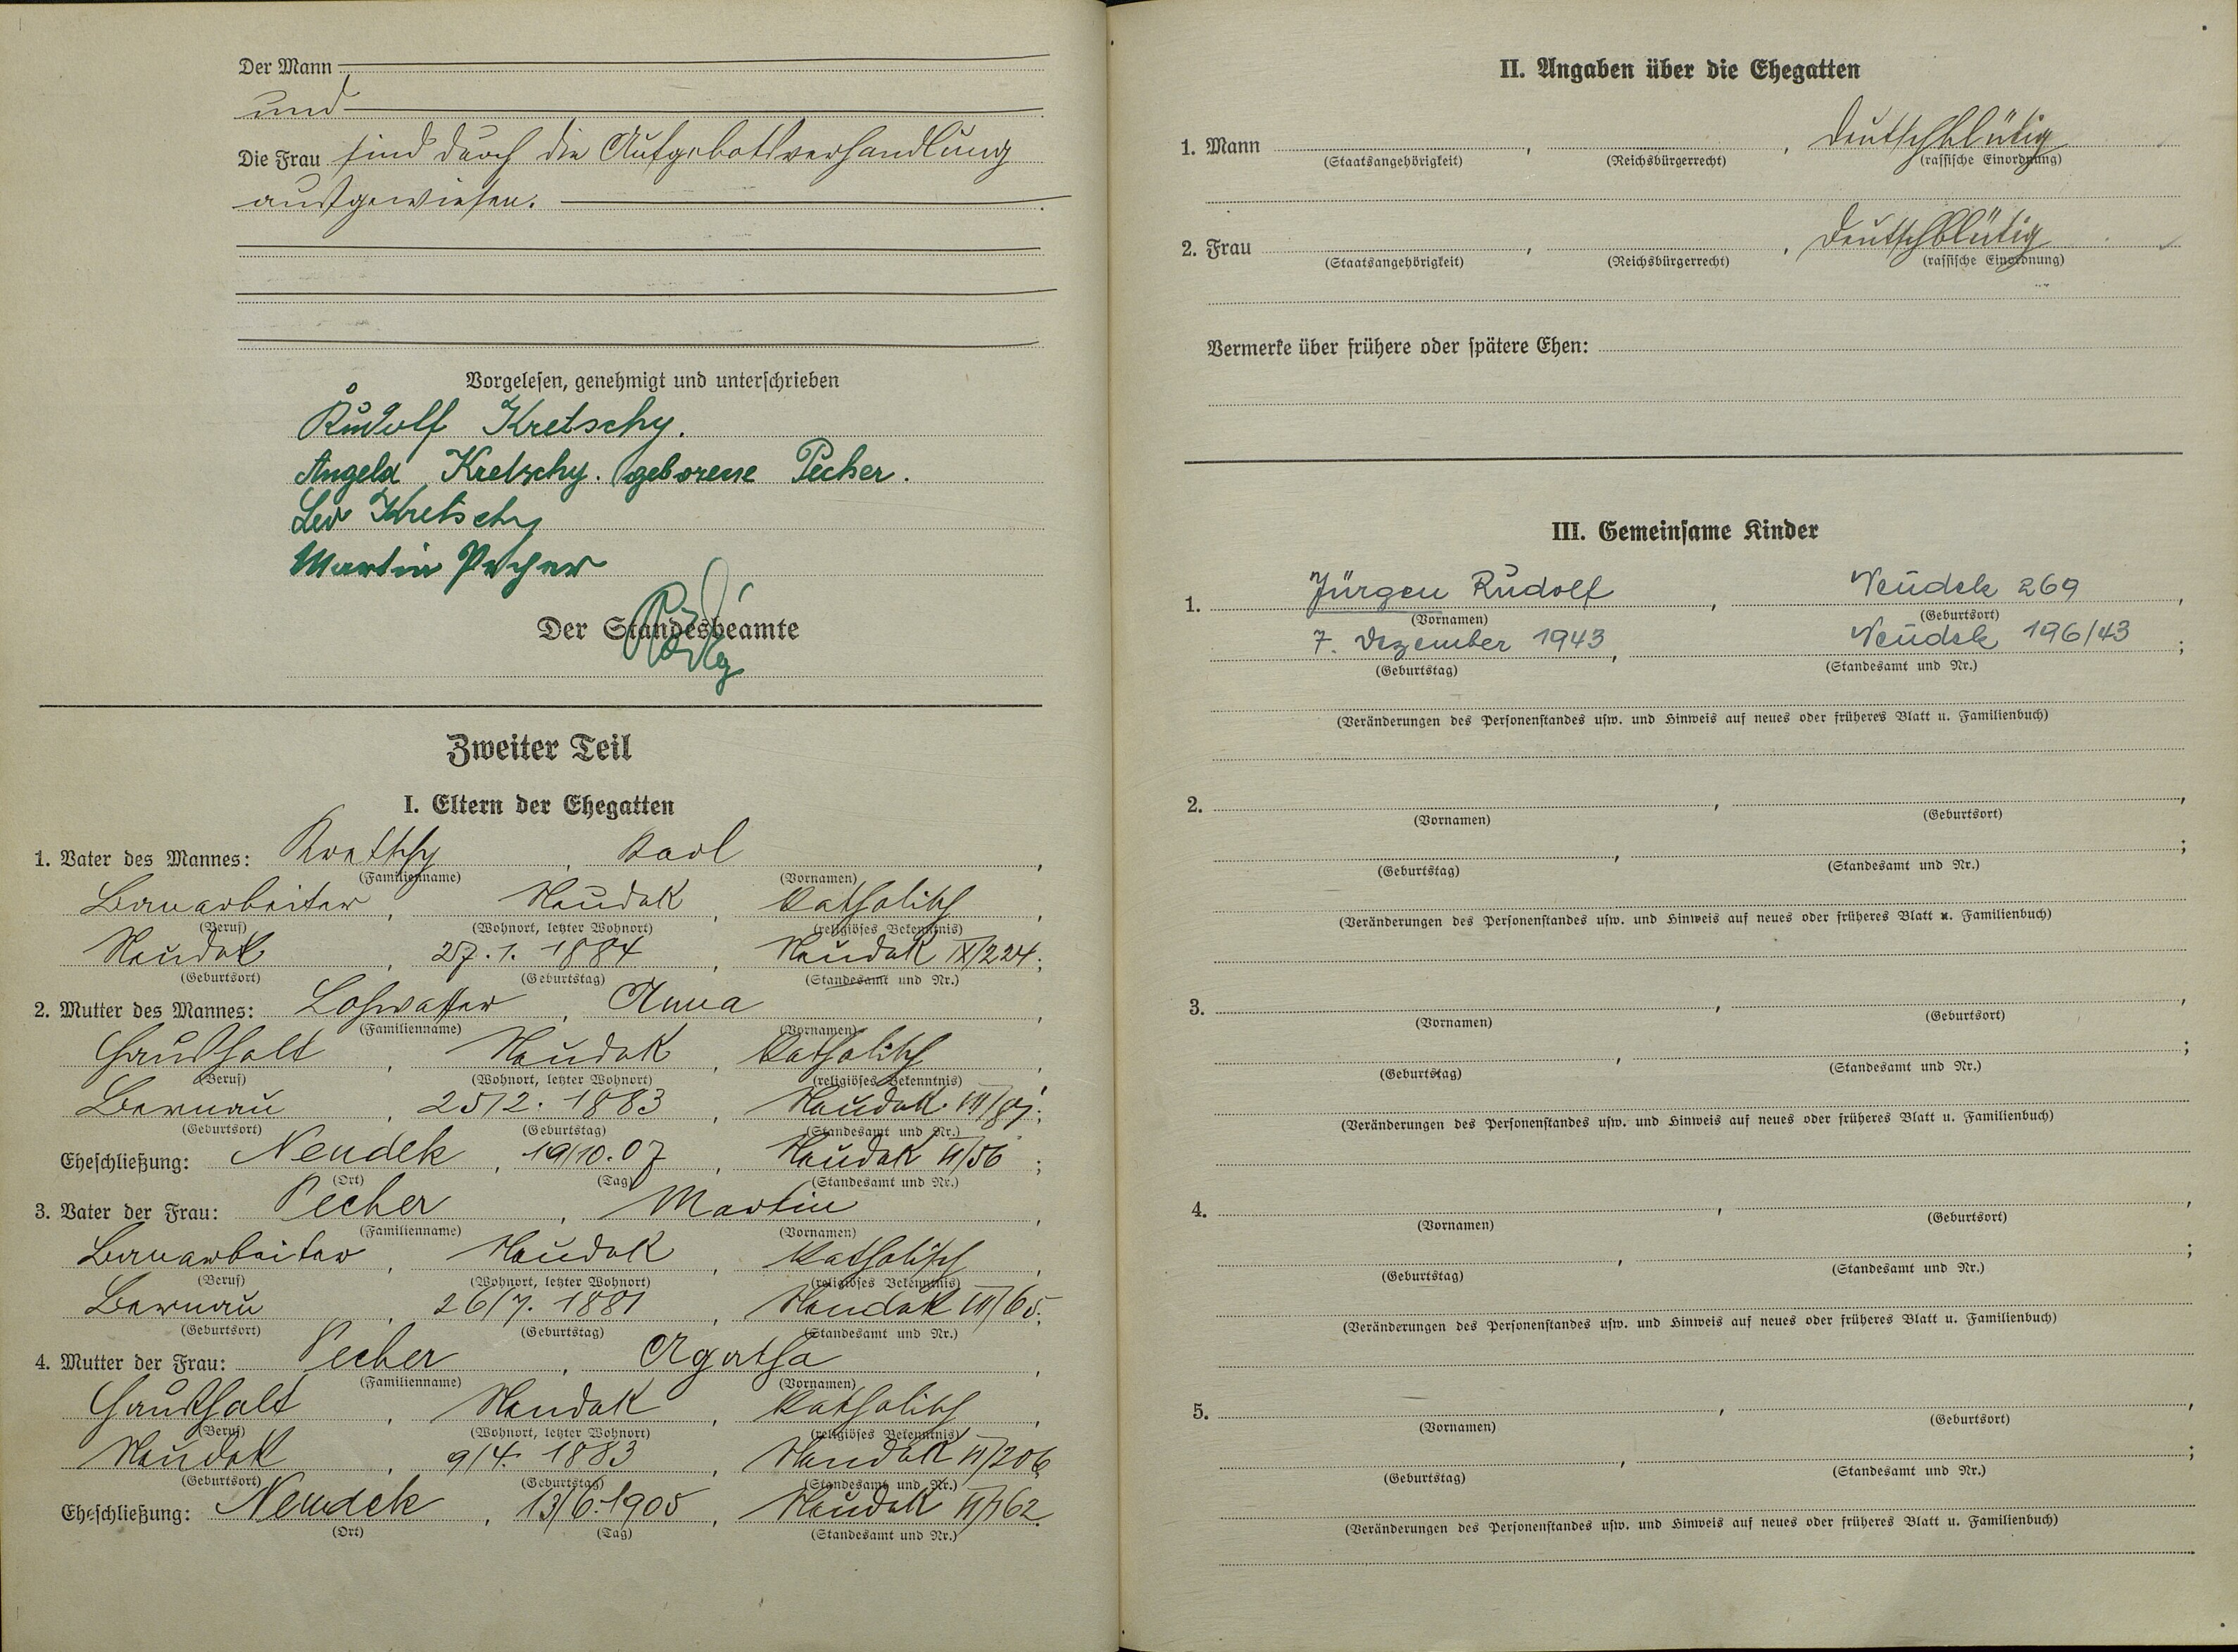 Der Mann
und
Die Frau sind durch die Aufgebotsverhandlung
ausgewiesen.
Vorgelesen, genehmigt und unterschrieben
Rudolf Kretschy.
Angela Kretschy. geborene Pecher.
Leo Kretschy
Martin Pecher
Der Standesbeamte
Zweiter Teil
I. Eltern der Ehegatten
1. Vater des Mannes: Kretschy, Karl,
(Familienname) (Vornamen)
Bauarbeiter, Neudek, katholisch,
(Beruf) (Wohnort, letzter Wohnort) (religiöses Bekenntnis)
Neudek, 27.1. 1884, Neudek IX/224;
(Geburtsort) (Geburtstag) (Standesamt und Nr.)
2. Mutter des Mannes: Lohwasser, Anna,
(Familienname) (Vornamen)
Haushalt, Neudek, katholisch,
(Beruf) (Wohnort, letzter Wohnort) (religiöses Bekenntnis)
Bernau, 1883, Neudek;
(Geburtsort) (Geburtstag) (Standesamt und Nr.)
Eheschließung: Neudek, 19/10.07, Neudek;
(Ort) (Tag) (Standesamt und Nr.)
3. Vater der Frau: Pecher, Martin,
(Familienname) (Vornamen)
Bauarbeiter, Neudek, katholisch,
(Beruf) (Wohnort, letzter Wohnort) (religiöses Bekenntnis)
Bernau, 26/7. 1881, Neudek;
(Geburtsort) (Geburtstag) (Standesamt und Nr.)
4. Mutter der Frau: Pecher, Agatha,
(Familienname) (Vornamen)
Haushalt, Neudek, katholisch,
(Beruf) (Wohnort, letzter Wohnort) (religiöses Bekenntnis)
Neudek, 9/4. 1883, Neudek
(Geburtsort) (Geburtstag) (Standesamt und Nr.)
Eheschließung: Neudek, 13/6.1905, Neudek
(Ort) (Tag) (Standesamt und Nr.)
II. Angaben über die Ehegatten
1. Mann , , deutschblütig
(Staatsangehörigkeit) (Reichsbürgerrecht) (rassische Einordnung)
2. Frau , , deutschblütig
(Staatsangehörigkeit) (Reichsbürgerrecht) (rassische Einordnung)
Vermerke über frühere oder spätere Ehen:
III. Gemeinsame Kinder
1. Jürgen Rudolf, Neudek 269,
(Vornamen) (Geburtsort)
7. Dezember 1943, Neudek 196/43;
(Geburtstag) (Standesamt und Nr.)
(Veränderungen des Personenstandes usw. und Hinweis auf neues oder früheres Blatt u. Familienbuch)
2. , ,
(Vornamen) (Geburtsort)
, ;
(Geburtstag) (Standesamt und Nr.)
(Veränderungen des Personenstandes usw. und Hinweis auf neues oder früheres Blatt u. Familienbuch)
3. , ,
(Vornamen) (Geburtsort)
, ;
(Geburtstag) (Standesamt und Nr.)
(Veränderungen des Personenstandes usw. und Hinweis auf neues oder früheres Blatt u. Familienbuch)
4. , ,
(Vornamen) (Geburtsort)
, ;
(Geburtstag) (Standesamt und Nr.)
(Veränderungen des Personenstandes usw. und Hinweis auf neues oder früheres Blatt u. Familienbuch)
5. , ,
(Vornamen) (Geburtsort)
, ;
(Geburtstag) (Standesamt und Nr.)
(Veränderungen des Personenstandes usw. und Hinweis auf neues oder früheres Blatt u. Familienbuch)